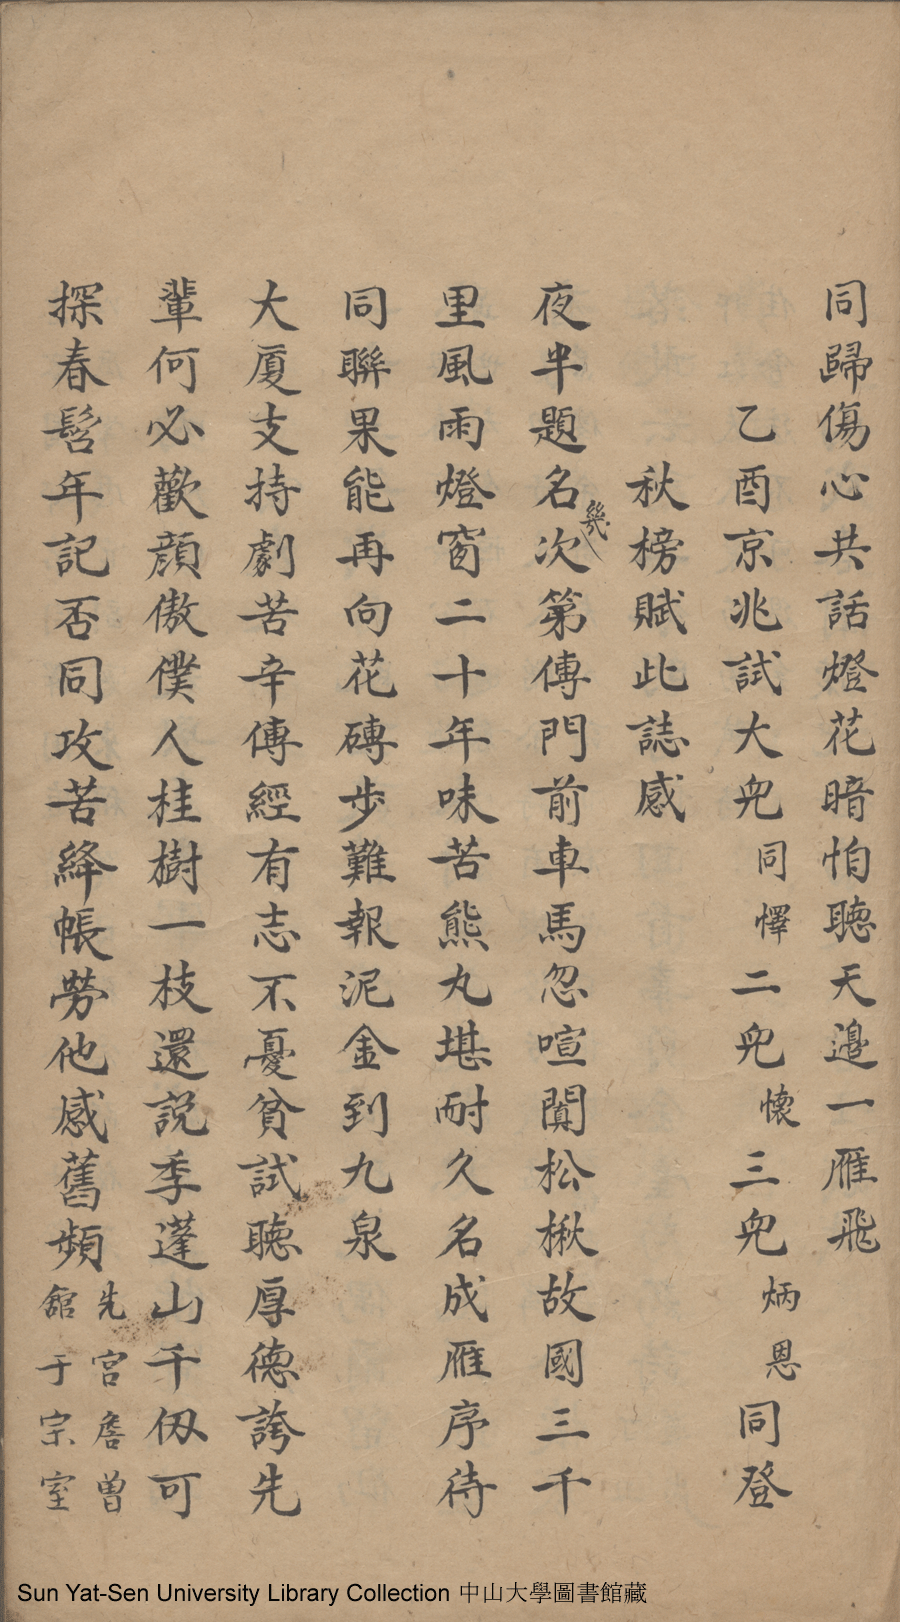 同歸傷心共話燈花暗怕聽天邉一雁飛
乙酉京兆試大兒同懌二兒懐三兒炳恩同登
秋榜賦此誌感
夜半題名幾次第傳門前車馬忽喧闐松楸故國三千
里風雨燈窗二十年味苦熊丸堪耐久名成雁序待
同聯果能再向花磚步難報泥金到九泉
大廈支持劇苦辛傳經有志不憂貧試聽厚德誇先
輩何必歡顔傲僕人桂樹一枝還説季蓬山千仭可
探春髫年記否同攻苦絳帳勞他感舊頻先宫詹曽
舘于宗室
Sun Yat-Sen University Library Collection 中山大學圖書館藏